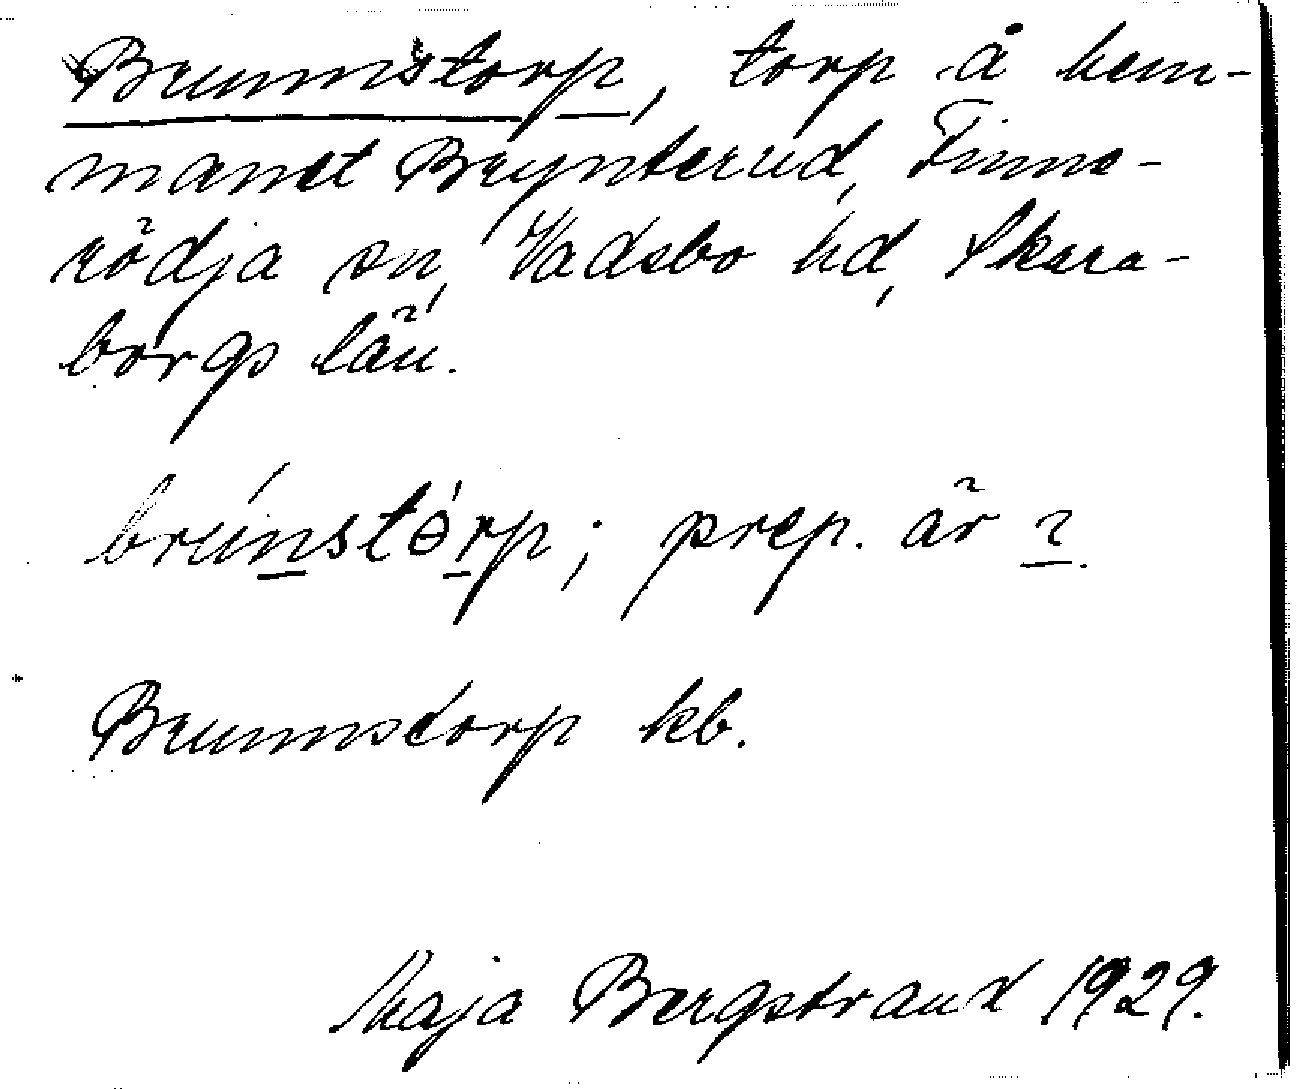 Brunnstorp, torp å hem-
manet Brynterud, Finne-
rödja sn, Vadsbo hd, Skara-
borgs län.
brúnstɵ́rp; prep. är ?.
Brunnstorp kb.
Maja Bergstrand 1929.